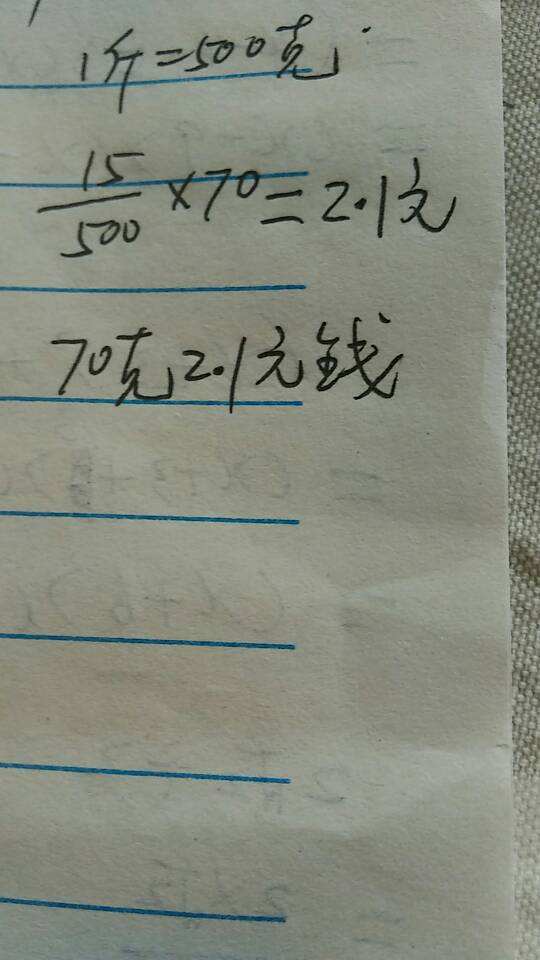 1斤=500克
15/500×70=2.1元
70克2.1元钱